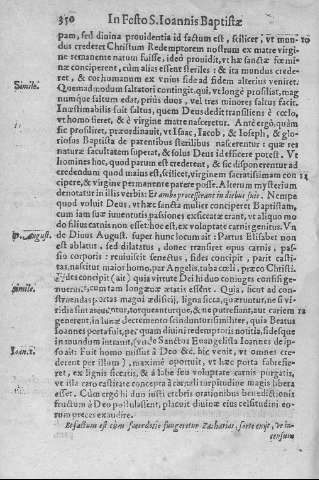 350 In Festo S. Ioannis Baptistæ
pam, sed divina providentia id factum est, scilicet, vt mun- 10
dus crederet Christum Redemptorem nostrum ex matre virgi-
ne permanente natum fuisse, ideo prouidit, vt hæ sanctæ fœmi-
næ conciperent, cùm alias essent steriles: & ita mundus crede-
ret, & cor humanum ex vnius fide ad fidem alterius veniret.
Simile. Quemadmodum saltatori contingit, qui, vt longè prosiliat, mag
numque saltum edat, priùs duos, vel tres minores saltus facit.
Inæstimabilis fuit saltus, quem Deus dedit transiliens è cœlo,
vt homo fieret, & è virgine matre nasceretur. Ante ergò, quàm
sic prosiliret, præordinauit, vt Isaac, Iacob, & Ioseph, & glo-
riosus Baptista de parentibus sterilibus nascerentur: quæ res
naturæ facultatem superat, & solus Deus id efficere potest. Vt
homines hoc, quod parum est crederent, & sic disponerentur ad
credendum quod maius est, scilicet, virginem sacratissimam con 11
cipere, & virginem permanente parere posse. Alterum mysterium
denotatur in illis verbis: Et ambo processissent in diebus suis. Nempe
quod voluit Deus, vt hæc sancta mulier conciperet Baptistam,
cum iam suæ iuuentutis pasiones exsiccatæ erant, vt aliquo mo
do filius carnis non esset: hoc est, ex voluptate carnis genitus. Vn
August. de Diuus August. super hunc locum ait: Partus Elisabet non
est ablatus, sed dilatatus, donec transiret opus carnis, pas-
sio corporis: reuiuiscit senectus, fides concipit, parit casti-
tas, nascitur maior homo, par Angelis, tuba cœli, præco Christi.
fides concipit (ait) quia virtute Dei hi duo coniuges consi
simile. cum tam longæuæ ætatis essent. Quia, sicut ad con-
struendas portas magni ædificij, ligna sicca, quæruntur, ne si vi-
ridia sint torqueantur, & putrefiant, aut cariem 12
generent, in lunæ decremento scinduntur: similiter, quia Beatus
Ioannes porta fuit, per quam diuini redemptoris notitia, fidesque
in mundum intrauit, (vnde Sanctus Euangelista Ioannes de ip-
Ioan. 1. so ait: Fuit homo missus à Deo &c. hic venit, vt omnes cre-
derent per illum) maximè oportuit, vt hæc porta fabricaŕe-
ret, ex lignis siccatis, & à labe seu voluptate carnis purgatis,
vt illa raro castitate concepta à carnali turpitudine magis libera
esset. Cùm ergò hi duo iusti crebris orationibus benedictionis
fructum à Deo postulassent, placuit diuinæ eius celsitudini eo-
rum preces exaudire.
Et factum est cùm sacerdotio fungeretur Zacharias, sorte exijt, vt in-
censum